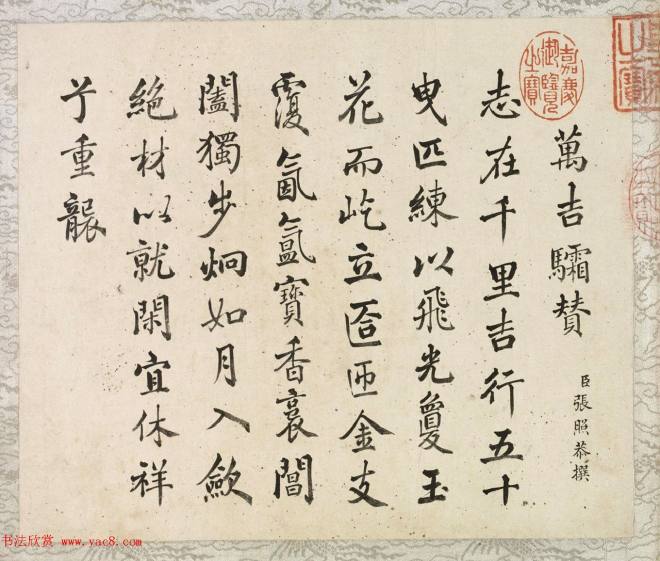 萬吉驦贊
臣張照恭撰
志在千里吉行五十
曳匹練以飛光敻玉
花而屹立匼匝金支
覆氤氳寶香裛閶
闔獨步炯如月入歛
絕材以就閑宜休祥
兮重襲
嘉慶御覽之寶
书法欣赏 www.yac8.com